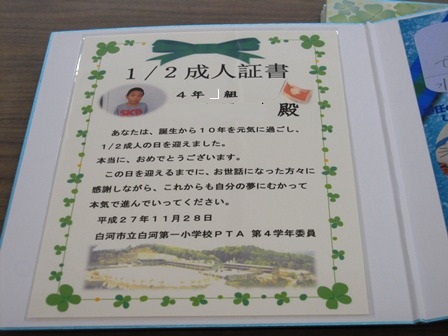 1/2成人証書
4年 組
殿
あなたは、誕生から10年を元気に過ごし、
1/2成人の日を迎えました。
本当に、おめでとうございます。
この日を迎えるまでに、お世話になった方々に
感謝しながら、これからも自分の夢にむかって
本気で進んでいってください。
平成27年11月28日
白河市立白河第一小学校PTA 第4学年委員